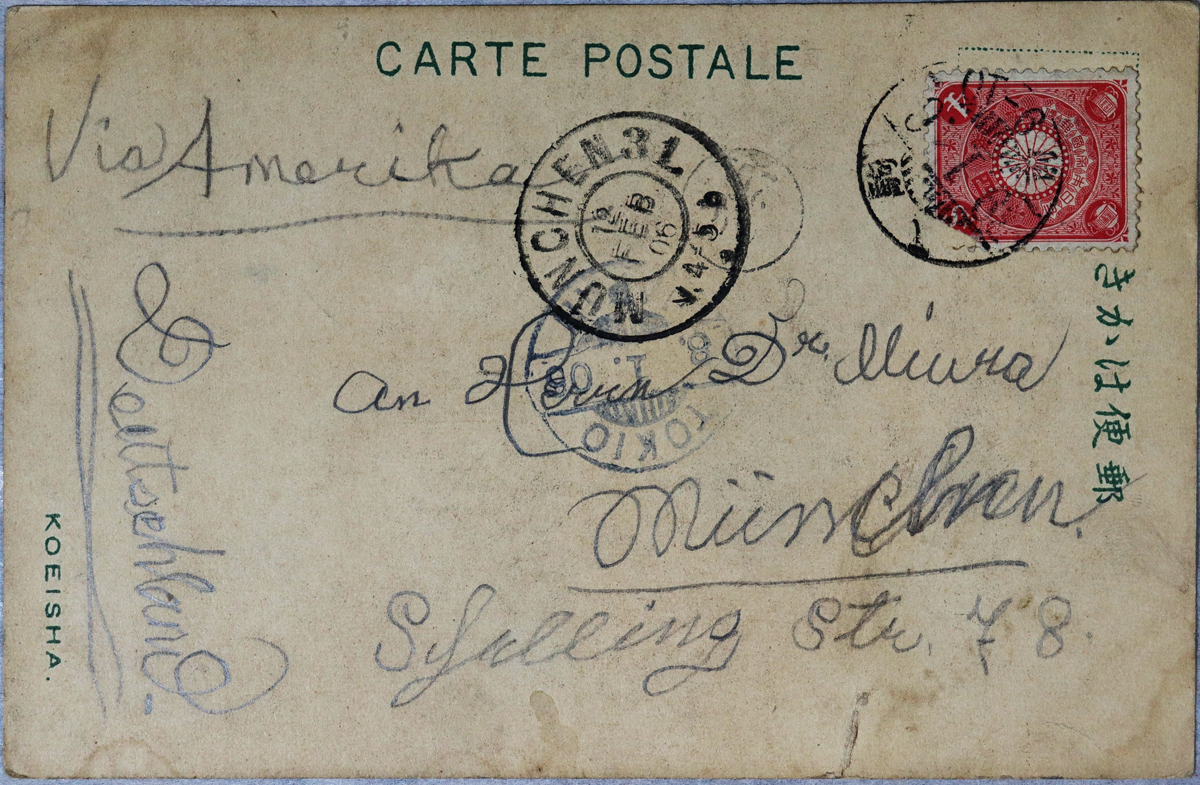 CARTE POSTALE
Via Amerika
MÜNCHEN 31.
12
FEB
06
V. 4-5
TOKIO
1. 06
an Herrn Dr. Miura
München.
Schelling Str. 78.
Deutschland
KOEISHA.
きかは便郵